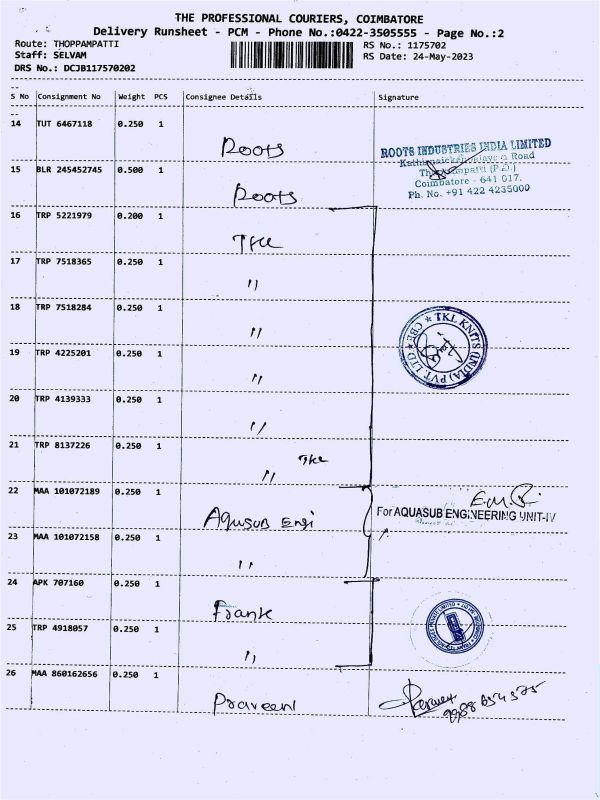 THE PROFESSIONAL COURIERS, COIMBATORE
Delivery Runsheet - PCM - Phone No.:0422-3505555 - Page No.:2
Route: THOPPAMPATTI RS No.: 1175702
Staff: SELVAM RS Date: 24-May-2023
DRS No.: DCJB117570202
S No Consignment No Weight PCS Consignee Details Signature
14 TUT 6467118 0.250 1
Roots
ROOTS INDUSTRIES INDIA LIMITED
Road
15 BLR 245452745 0.500 1
(P.O.)
Coimbatore - 641 017.
Roots
Ph. No. +91 422 4235000
16 TRP 5221979 0.200 1
17 TRP 7518365 0.250 1
"
18 TRP 7518284 0.250 1
"
TKL KNITS (INDIA) PVT LTD
CBE
19 TRP 4225201 0.250 1
"
20 TRP 4139333 0.250 1
"
21 TRP 8137226 0.250 1
"
22 MAA 101072189 0.250 1
Aqusub Engi
For AQUASUB ENGINEERING UNIT-IV
23 MAA 101072158 0.250 1
"
24 APK 707160 0.250 1
Frank
25 TRP 4918057 0.250 1
"
26 MAA 860162656 0.250 1
Praveen